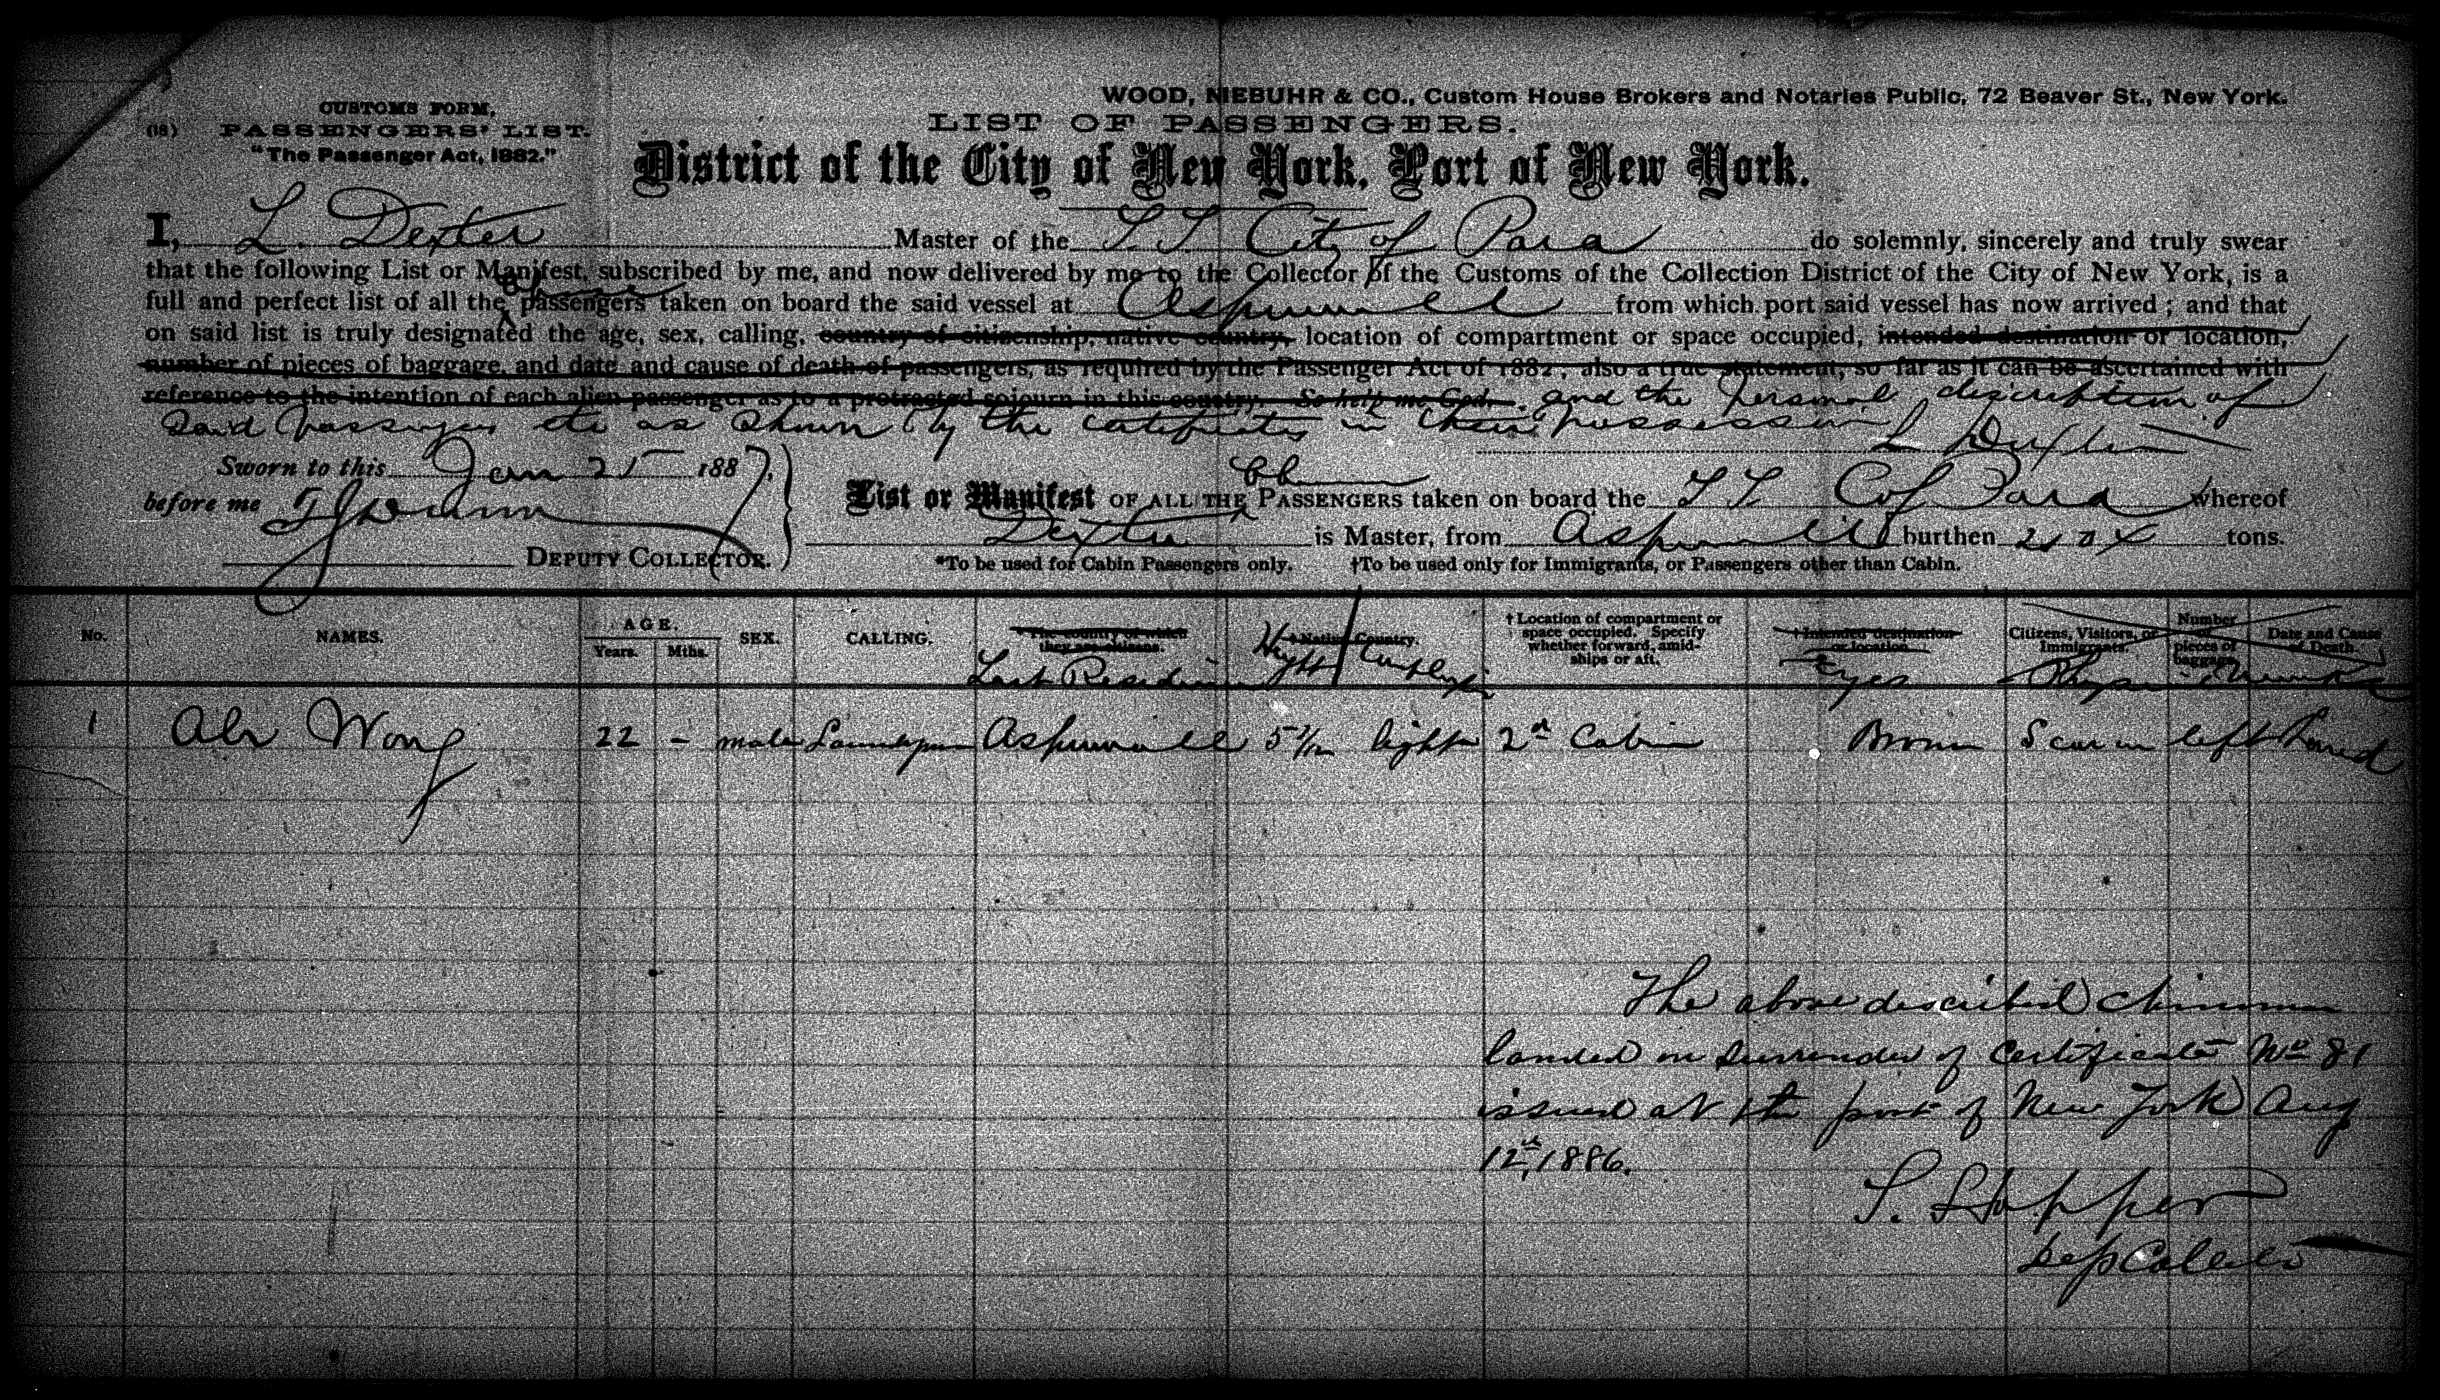 WOOD, NIEBUHR & CO., Custom House Brokers and Notaries Public, 72 Beaver St., New York.
CUSTOMS FORM,
(18) PASSENGERS' LIST.
"The Passenger Act, 1882."
LIST OF PASSENGERS.
District of the City of New York, Port of New York.
I, L. Dexter Master of the S.S. City of Para do solemnly, sincerely and truly swear
that the following List or Manifest, subscribed by me, and now delivered by me to the Collector of the Customs of the Collection District of the City of New York, is a
full and perfect list of all the Chinese passengers taken on board the said vessel at Aspinwall from which port said vessel has now arrived; and that
on said list is truly designated the age, sex, calling, country of citizenship, native country, location of compartment or space occupied, intended destination or location,
number of pieces of baggage, and date and cause of death of passengers, as required by the Passenger Act of 1882; also a true statement, so far as it can be ascertained with
reference to the intention of each alien passenger as to a protracted sojourn in this country. So help me God. and the personal description of
Said passengers etc as shown by the certificates in their possession
L Dexter
Sworn to this Jan 25 1887.
before me
DEPUTY COLLECTOR.
List or Manifest OF ALL THE Chinese PASSENGERS taken on board the S.S. C of Para whereof
Dexter is Master, from Aspinwall burthen tons.
*To be used for Cabin Passengers only. †To be used only for Immigrants, or Passengers other than Cabin.
No. NAMES. AGE. Years. Mths. SEX. CALLING. *The country of which they are citizens. Last Residence †Native Country. Height Complexion †Location of compartment or space occupied. Specify whether forward, amidships or aft. †Intended destination or location. Eyes Citizens, Visitors, or Immigrants. Number of pieces of baggage. Date and Cause of Death. Physical Marks
1 Ah Wong 22 - male Laundryman Aspinwall 5 7/12 light 2d Cabin Brown Scar on left hand
The above described chinaman
landed on surrender of certificate No 81
issued at the port of New York Aug
12th, 1886.
S. Hopper
Dep Collector